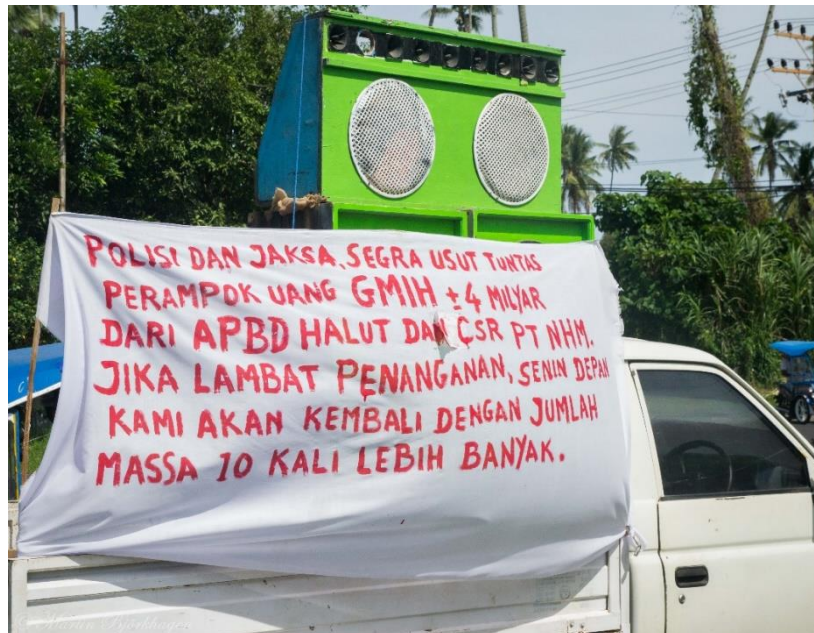 POLISI DAN JAKSA, SEGRA USUT TUNTAS
PERAMPOK UANG GMIH ±4 MILYAR
DARI APBD HALUT DAN CSR PT NHM.
JIKA LAMBAT PENANGANAN, SENIN DEPAN
KAMI AKAN KEMBALI DENGAN JUMLAH
MASSA 10 KALI LEBIH BANYAK.
© Martin Björkhagen